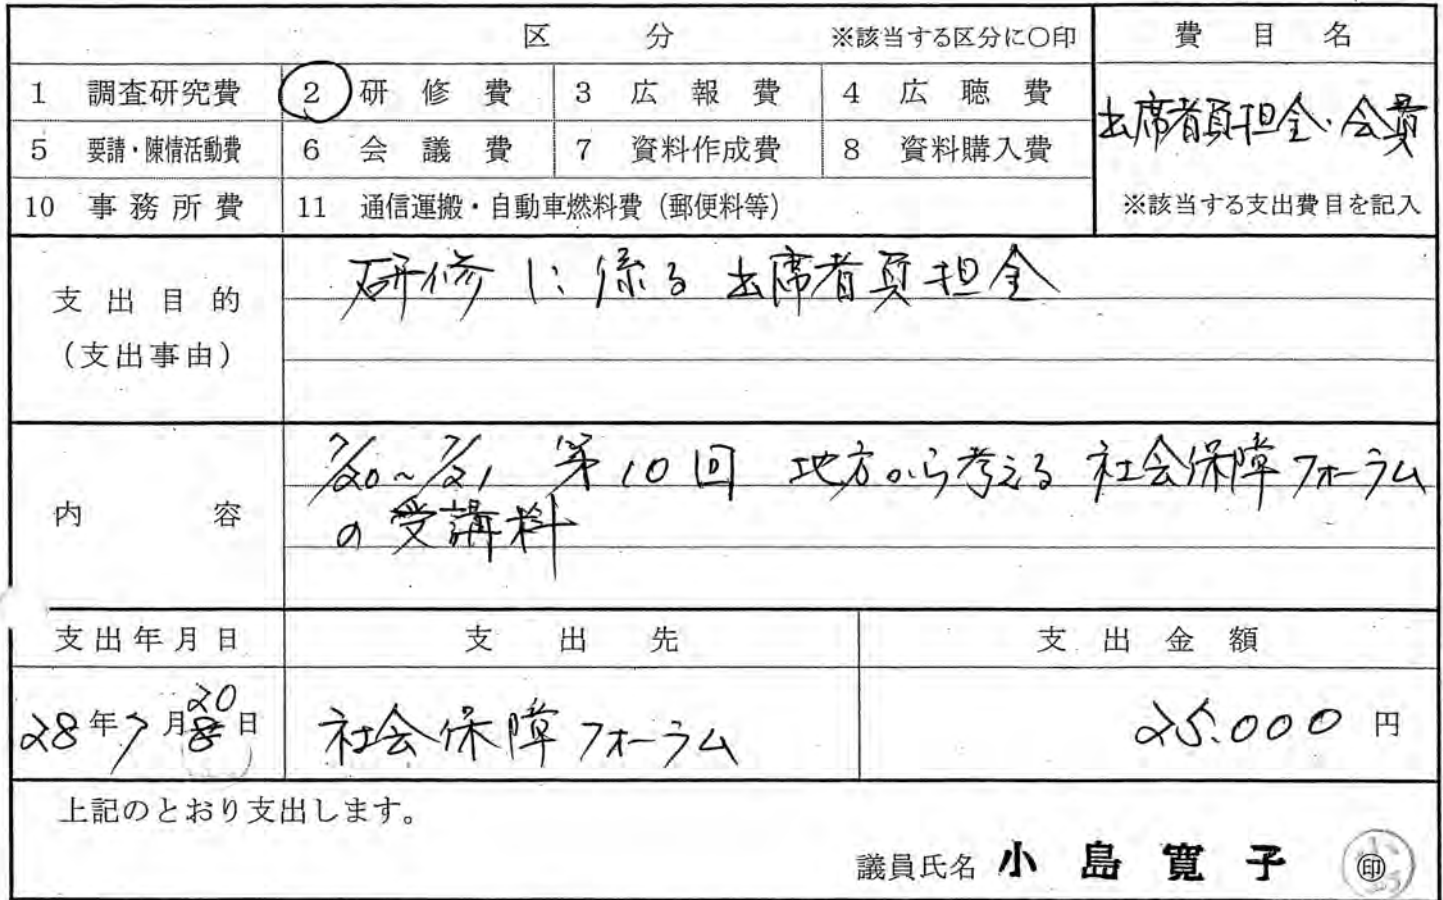 区 分 ※該当する区分に○印 費 目 名
1 調査研究費 2 研 修 費 3 広 報 費 4 広 聴 費
出席者負担金・会費
5 要請・陳情活動費 6 会 議 費 7 資料作成費 8 資料購入費
10 事 務 所 費 11 通信運搬・自動車燃料費（郵便料等） ※該当する支出費目を記入
研修に係る出席者負担金
支 出 目 的
（支出事由）
7/20～7/21 第10回 地方から考える社会保障フォーラム
内 容
の受講料
支出年月日 支 出 先 支 出 金 額
20
28年7月8日 社会保障フォーラム 25.000円
上記のとおり支出します。
議員氏名 小 島 寛 子 印